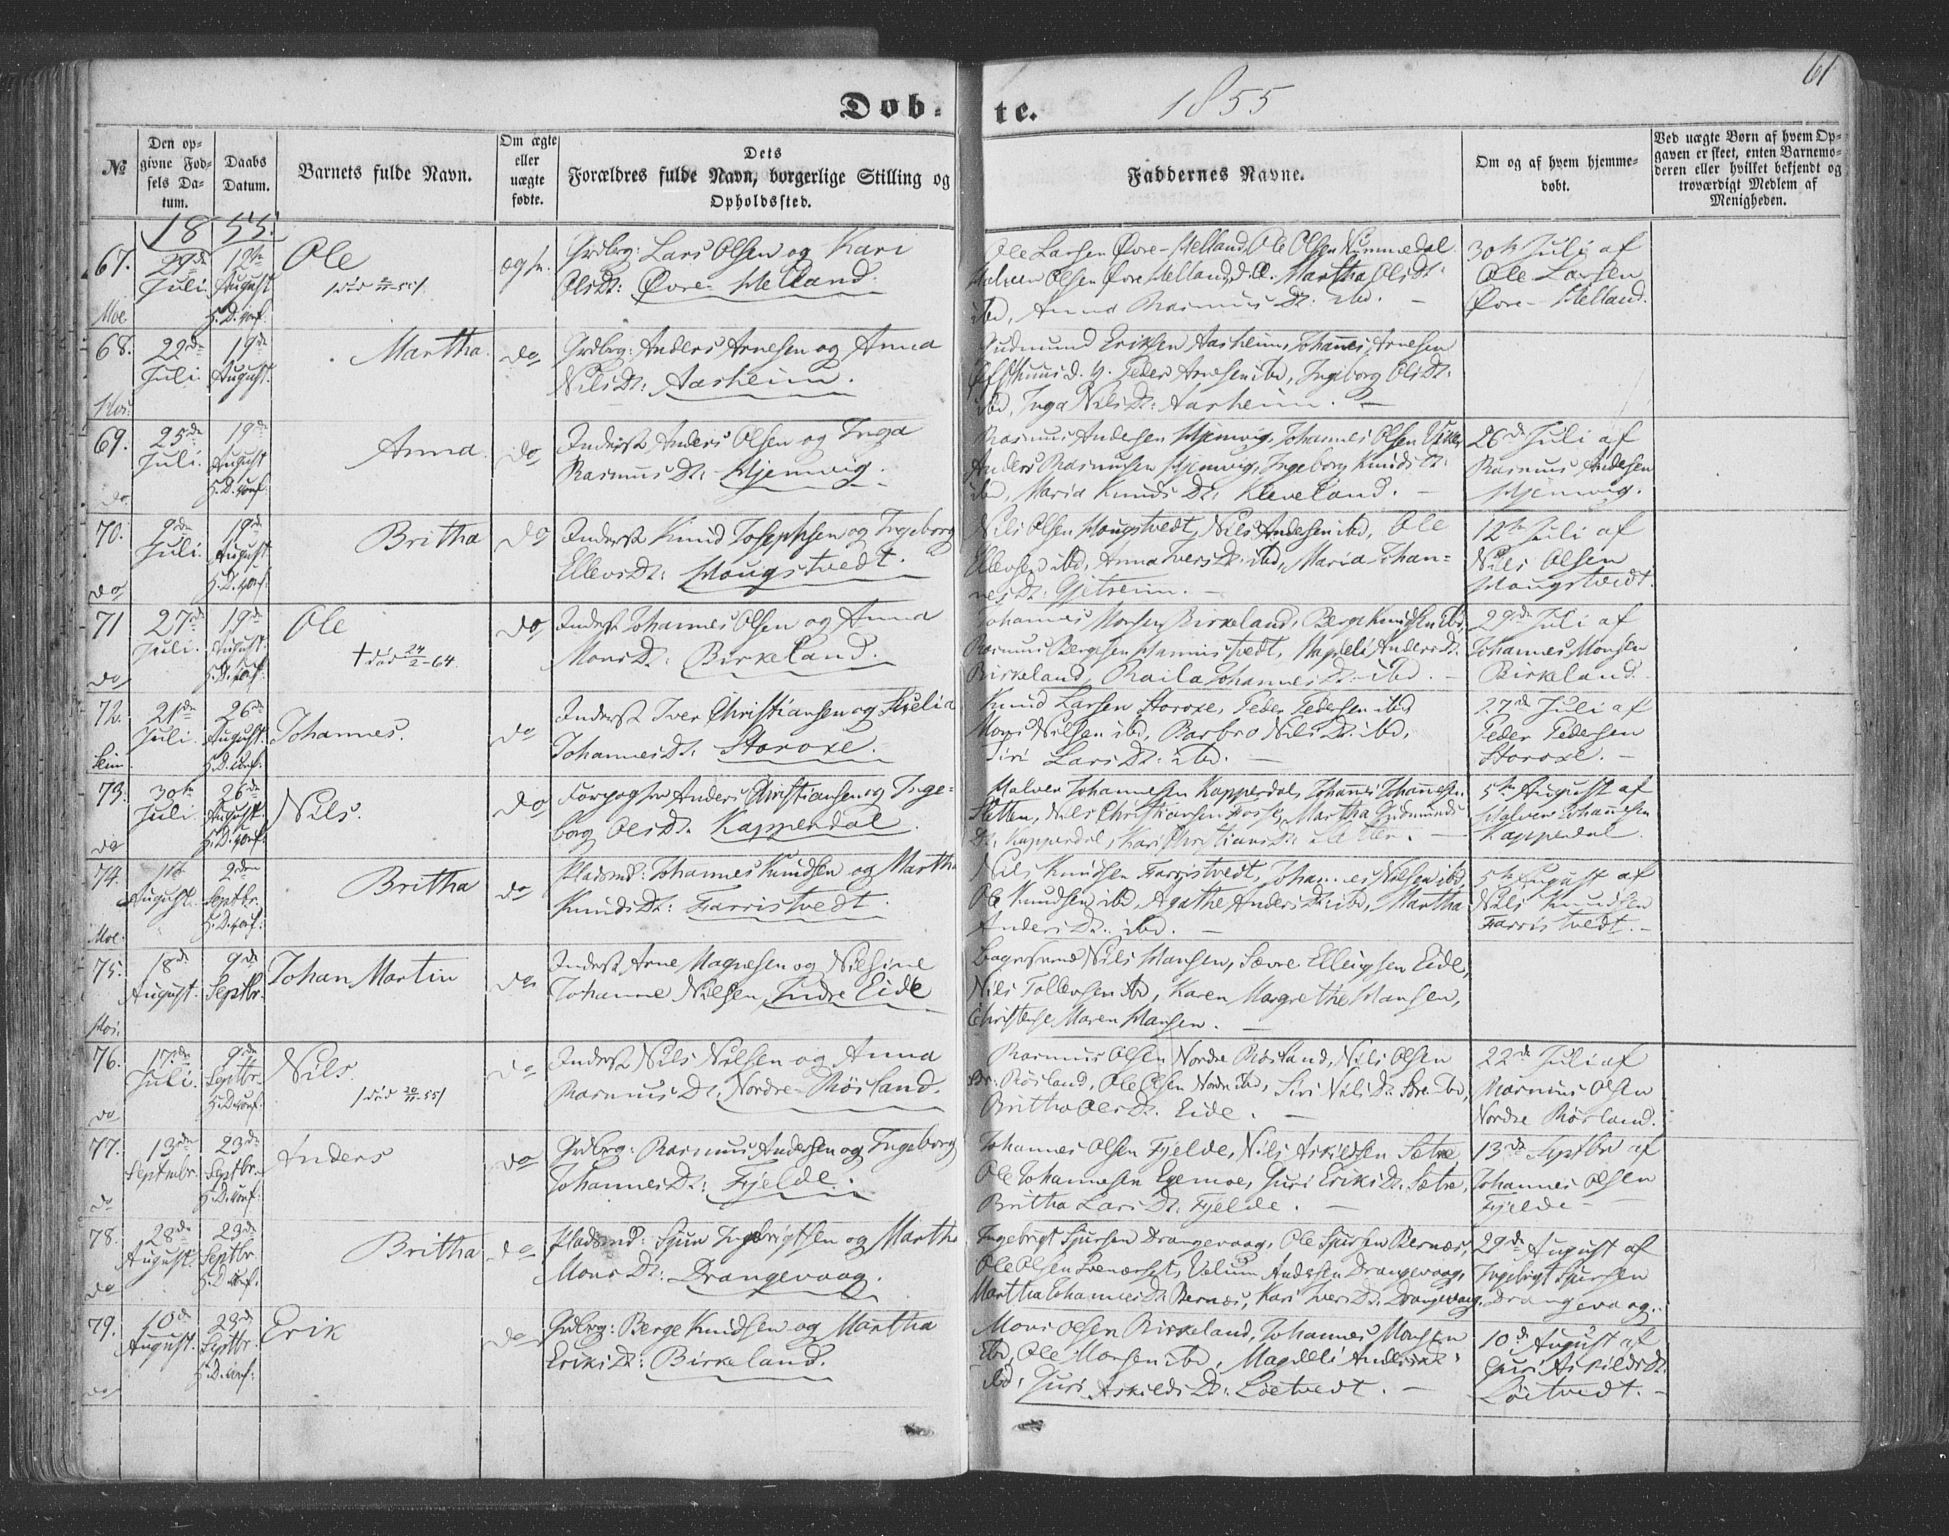 61
1855
Døb-te.
№
Den opgivne Fødsels Datum.
Daabs Datum.
Barnets fulde Navn.
Om ægte eller uægte fødte.
Dets Forældres fulde Navn, borgerlige Stilling og Opholdssted.
Faddernes Navne.
Om og af hvem hjemmedøbt.
Ved uægte Børn af hvem Opgaven er skeet, enten Barnemoderen eller hvilket bekjendt og troværdigt Medlem af Menigheden.
1855.
67.
29de Juli.
12te August
H.D. conf.
Ole
Grdbrg: Lars Olsen og Kari
Olsdt: Øvre-Helland.
Ole Larsen Øvre-Helland, Ole Olsen Nummedal
Olsen Øvre Helland, Martha Olsdt:
ibd, Anna Rasmusdt: ibd. —
30te Juli af
Ole Larsen
Øvre-Helland.
Moe
68.
22de Juli
19de August.
Martha.
do
Grdbrg: Anders Arnesen og Anna
Nilsdt: Aasheim.
Gudmund Eriksen Aasheim, Johannes Arnesen
Peder Arnesen ibd, Ingeborg Olsdt:
ibd, Inga Nilsdt: Aasheim. —
Hos:
69.
25de Juli.
19de August
H.D. conf.
Anna.
do
Inderst Anders Olsen og Inga
Rasmusdt: Hjemvig.
Rasmus Andersen Hjemvig, Johannes Olsen
Anders Rasmussen Hjemvig, Ingeborg Knudsdt:
ibd, Maria Knudsdt: Kleveland. —
26de Juli af
Rasmus Andersen
Hjemvig.
do
70.
9de Juli.
19de August.
H.D. conf.
Britha
do
Inderst Knud Josephsen og Ingeborg
Ellevsdt: Hougstvedt.
Nils Olsen Hougstvedt, Nils Andersen ibd, Ole
Ellevsen ibd, Anna Iversdt: ibd, Maria Johan-
nesdt: Gjetreim. —
12te Juli af
Nils Olsen
Hougstvedt.
do
71
27de Juli.
19de August.
H.D. conf.
Ole
† død 24/2-64.
do
Inderst Johannes Olsen og Anna
Monsdt: Birkeland.
Johannes Monsen Birkeland, Berge Knudsen ibd,
Rasmus Bergesen Magdeli Andersdt:
Birkeland, Raila Johannesdt: ibd. —
29de Juli af
Johannes Monsen
Birkeland.
do
72.
21de Juli.
26de August.
H.D. conf.
Johannes.
do
Inderst Iver Christiansen og
Johannesdt: Storoxe.
Knud Larsen Storoxe, Peder Pedersen ibd
Mons Nilsen ibd, Barbro Nilsdt: ibd,
Siri Larsdt: ibd. —
27de Juli af
Peder Pedersen
Storoxe. —
73.
30te Juli
26de August.
H.D. conf.
Nils.
do
Anders Christiansen og Inge-
borg Olsdt. Kapperdal.
Halver Johannesen Kapperdal, Johannes Johannesen
Sletten, Nils Christiansen Fosse, Martha Gudmunds
Dt: Kapperdal, Kari Christiansdt: Sletten. —
5te August af
Halver Johannesen
Kapperdal.
do
74.
August.
2den Septbr.
H.D. conf.
Britha
do
Pladsmd: Johannes Knudsen og Martha
Knudsdt: Farristvedt.
Nils Knudsen Farristvedt, Johannes Nilsen ibd
Ole Knudsen ibd, Agathe Andersdt: ibd, Martha
Andersdt: ibd. —
5te August af
Nils Knudsen
Farristvedt. —
Moe.
75.
18de August.
9de Septbr.
Johan Martin
do
Inderst Arne Magnesen og Nilsine
Johanne Nilsen, Indre Eide
Nils Hansen, Sævre Ellingsen Eide,
Nils Tollevsen ibd, Karen Margrethe Hansen,
Christense Maren Hansen. —
Hos:
76.
17de Juli.
9de Septbr.
H.D. conf.
Nils.
do
Inderst Nils Nilsen og Anna
Rasmusdt. Nordre-Røsland.
Rasmus Olsen Nordre Røsland, Nils Olsen
Røsland, Ole Olsen Nordre ibd, Siri Nilsdt: Sdre. ibd,
Britha Olsdt. Eide. —
22de Juli af
Rasmus Olsen
Nordre Røsland.
do
77.
13de Septmbr.
23de Septbr.
H.D. conf.
Anders
do
Grdbrg: Rasmus Andersen og Ingeborg
Johannesdt: Fjelde.
Johannes Olsen Fjelde, Nils Askildsen Sætre
Ole Johannesen Egemoe, Guri Eriksdt: Sætre,
Britha Larsdt: Fjelde. —
13de Septbr af
Johannes Olsen
Fjelde —
do
78.
28de August.
23de Septbr
H.D. conf.
Britha
do
Pladsmd: Sjur Ingebrigtsen og Martha
Monsdt: Drangevaag.
Ingebrigt Sjursen Drangevaag, Ole Sjursen Bernæs,
Ole Olsen Andersen Drangevaag,
Martha Johannesdt: Bernæs, Kari Iversdt: Drangevaag.
29de August af
Ingebrigt Sjursen
Drangevaag.
do
79.
10de August.
23de Septbr.
H.D. conf:
Erik
do
Grdbrg: Berge Knudsen og Martha
Eriksdt: Birkeland.
Mons Olsen Birkeland, Johannes Monsen
ibd, Ole Monsen ibd, Magdeli Andersdt:
ibd, Guri Askildsdt: Løetvedt. —
10de August af
Guri Askildsdt:
Løetvedt. —
do